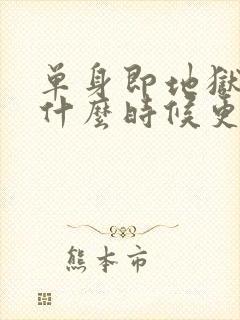 單身即地獄
什麼時候更
熊本市